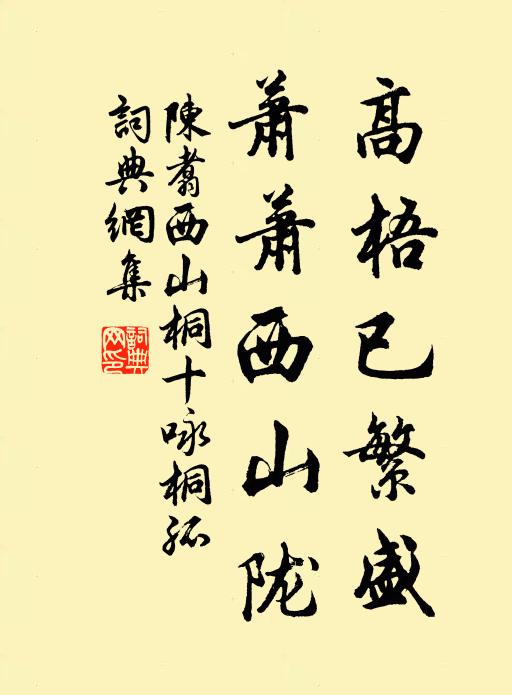 高梧已繁盛
蕭蕭西山陇
陳翥西山桐十咏桐孤
詞典網集
詞典網印